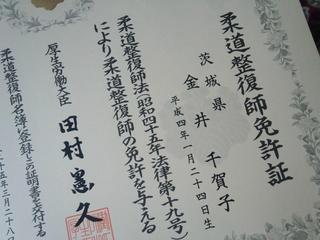 柔道整復師免許証
茨城県
金井千賀子
平成四年一月二十四日生
柔道整復師法(昭和四十五年法律第十九号)
により柔道整復師の免許を与える
厚生労働大臣 田村憲久
柔道整復師名簿に登録しこの証明書を交付する
十五年三月二十八